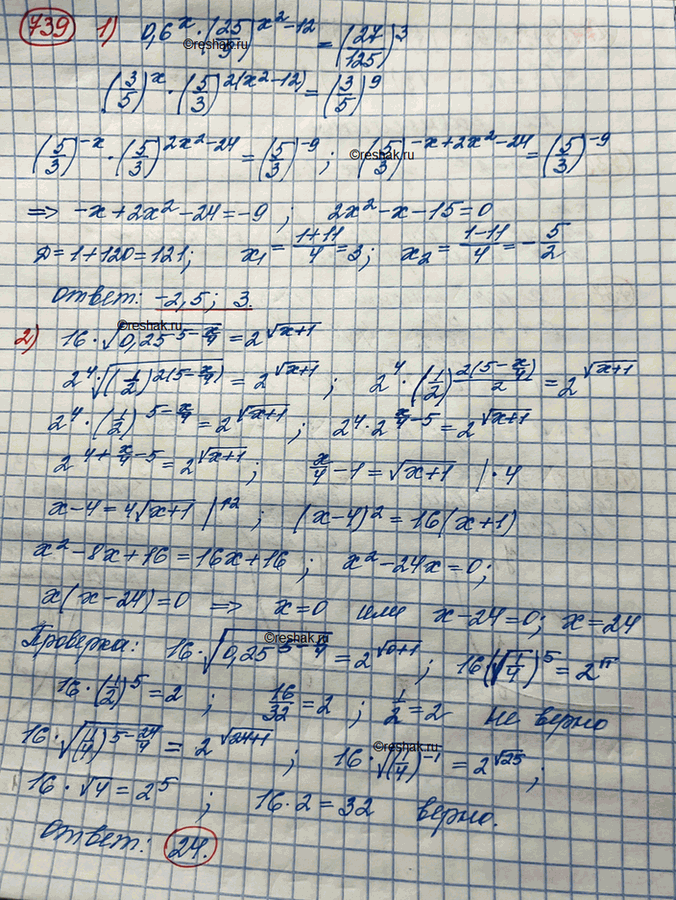 739 1) 0,6^x · (25/9)^(x²-12) = (27/125)^3
(3/5)^x · (5/3)^(2(x²-12)) = (3/5)^9
(5/3)^(-x) · (5/3)^(2x²-24) = (5/3)^(-9) ; (5/3)^(-x+2x²-24) = (5/3)^(-9)
=> -x+2x²-24=-9 ; 2x²-x-15=0
Д=1+120=121; x₁ = (1+11)/4 = 3; x₂ = (1-11)/4 = -5/2
ответ: -2,5; 3.
2) 16 · √(0,25^(5-x/4)) = 2^√(x+1)
2^4 · √((1/2)^(2(5-x/4))) = 2^√(x+1) ; 2^4 · (1/2)^(2(5-x/4)/2) = 2^√(x+1)
2^4 · (1/2)^(5-x/4) = 2^√(x+1) ; 2^4 · 2^(x/4-5) = 2^√(x+1)
2^(4+x/4-5) = 2^√(x+1) ; x/4 - 1 = √(x+1) | · 4
x-4 = 4√(x+1) |↑2 ; (x-4)² = 16(x+1)
x²-8x+16 = 16x+16 ; x²-24x=0;
x(x-24)=0 => x=0 или x-24=0; x=24
Проверка: 16 · √(0,25^(5-0/4)) = 2^√(0+1) ; 16(√(1/4))^5 = 2^√1
16 · (1/2)^5 = 2 ; 16/32 = 2 ; 1/2 = 2 не верно
16 · √((1/4)^(5-24/4)) = 2^√(24+1) ; 16 · √((1/4)^(-1)) = 2^√25 ;
16 · √4 = 2^5 ; 16 · 2 = 32 верно.
ответ: 24.
©reshak.ru
©reshak.ru
©reshak.ru
©reshak.ru
©reshak.ru